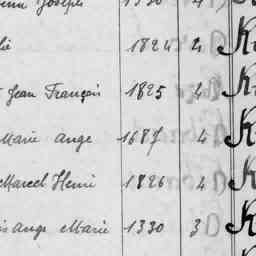 Joseph
1824 4 K
Jean François 1825 4 K
Marie Ange 1687 4 K
Marcel Henri 1826 4 K
Ange Marie 1330 3 K